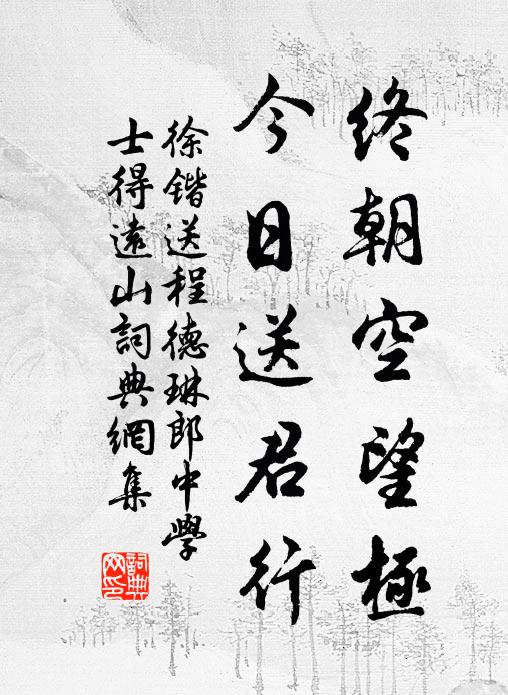 終朝空望極
今日送君行
徐鍇送程德琳郎中學
士得遠山詞典網集
詞典網印